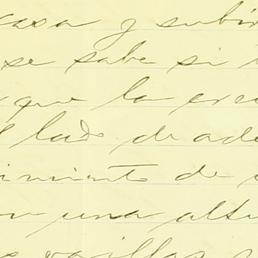 casa y subir
se sabe si
que la
lado de ade
imiento de
una altu
varillas